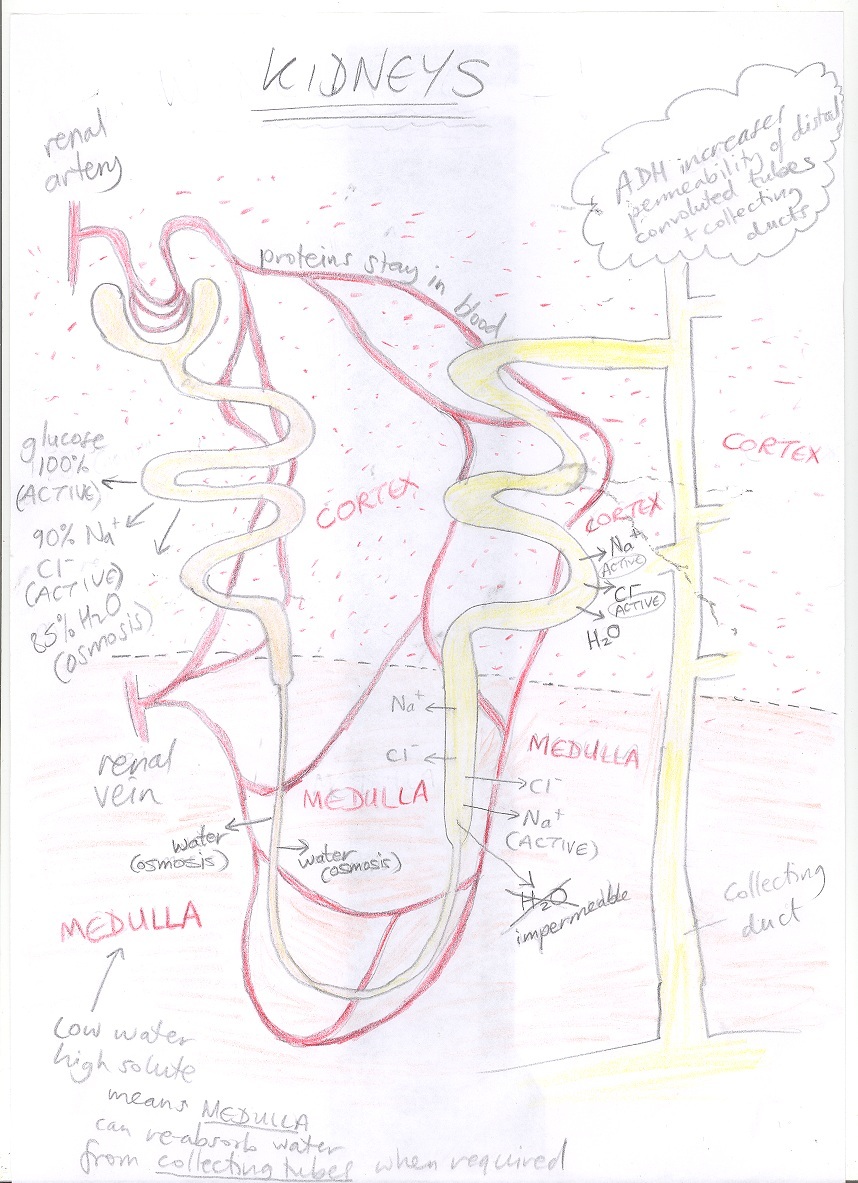 KIDNEYS
renal
artery
ADH increases
permeability of distal
convoluted tubes
+ collecting
ducts
proteins stay in blood
glucose
100%
(ACTIVE)
90% Na⁺
Cl⁻
(ACTIVE)
85% H₂O
(osmosis)
CORTEX
CORTEX
CORTEX
Na⁺
ACTIVE
Cl⁻
ACTIVE
H₂O
renal
vein
Na⁺
Cl⁻
Cl⁻
Na⁺
(ACTIVE)
H₂O
impermeable
MEDULLA
MEDULLA
water
(osmosis)
water
(osmosis)
MEDULLA
Collecting
duct
Low water
high solute
means MEDULLA
can re-absorb water
from collecting tubes when required